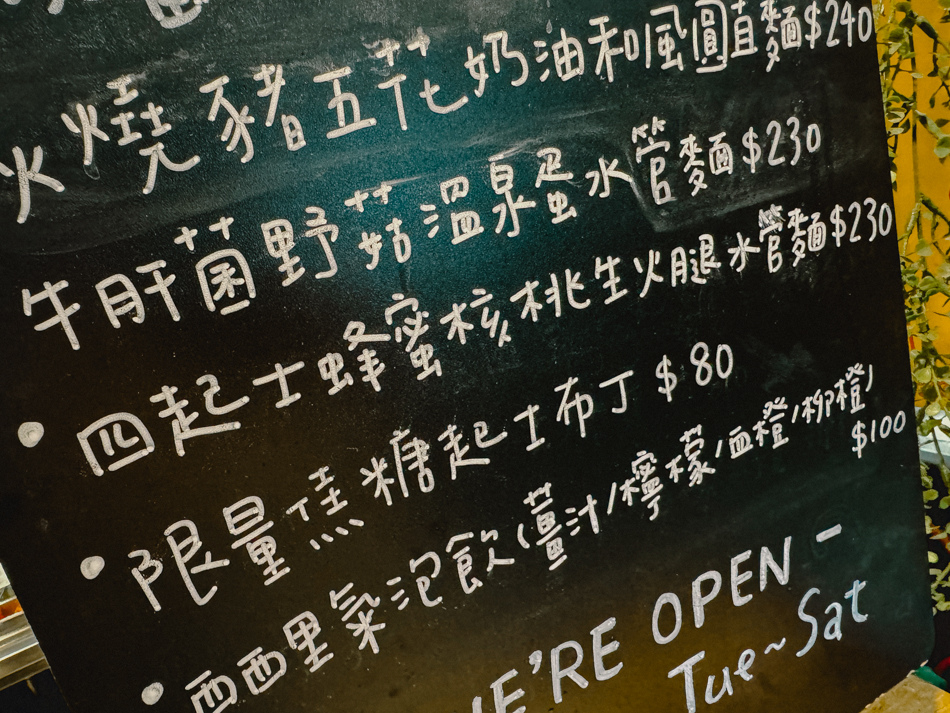 火燒豬五花奶油和風圓直麵$240
牛肝菌野菇溫泉蛋水管麵$230
• 四起士蜂蜜核桃生火腿水管麵$230
• 限量焦糖起士布丁 $80
• 西西里氣泡飲(薑汁/檸檬/血橙/柳橙)
$100
WE'RE OPEN -
Tue~Sat